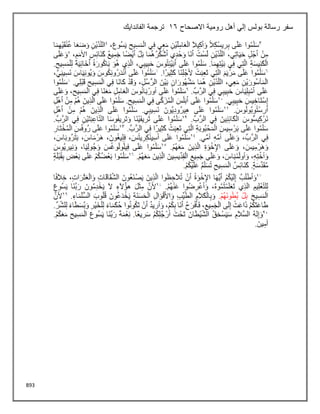 سفر رسالة بولس إلي أهل رومية الاصحاح ١٦ ترجمة الفاندايك
سَلِّمُوا عَلَى بِرِيسْكِلاَّ وَأَكِيلاَ الْعَامِلَيْنِ مَعِي فِي الْمَسِيحِ يَسُوعَ، اللَّذَيْنِ وَضَعَا عُنُقَيْهِمَا
مِنْ أَجْلِ حَيَاتِي، اللَّذَيْنِ لَسْتُ أَنَا وَحْدِي أَشْكُرُهُمَا بَلْ أَيْضًا جَمِيعُ كَنَائِسِ الأُمَمِ، وَعَلَى
الْكَنِيسَةِ الَّتِي فِي بَيْتِهِمَا. سَلِّمُوا عَلَى أَبَيْنِتُوسَ حَبِيبِي، الَّذِي هُوَ بَاكُورَةُ أَخَائِيَةَ لِلْمَسِيحِ.
سَلِّمُوا عَلَى مَرْيَمَ الَّتِي تَعِبَتْ لأَجْلِنَا كَثِيرًا. سَلِّمُوا عَلَى أَنْدَرُونِكُوسَ وَيُونِيَاسَ نَسِيبَيَّ،
الْمَأْسُورَيْنِ مَعِي، اللَّذَيْنِ هُمَا مَشْهُورَانِ بَيْنَ الرُّسُلِ، وَقَدْ كَانَا فِي الْمَسِيحِ قَبْلِي. سَلِّمُوا
عَلَى أَمْبِلِيَاسَ حَبِيبِي فِي الرَّبِّ. سَلِّمُوا عَلَى أُورْبَانُوسَ الْعَامِلِ مَعَنَا فِي الْمَسِيحِ، وَعَلَى
إِسْتَاخِيسَ حَبِيبِي. سَلِّمُوا عَلَى أَبَلِّسَ الْمُزَكَّى فِي الْمَسِيحِ. سَلِّمُوا عَلَى الَّذِينَ هُمْ مِنْ أَهْلِ
أَرِسْتُوبُولُوسَ. سَلِّمُوا عَلَى هِيرُودِيُونَ نَسِيبِي. سَلِّمُوا عَلَى الَّذِينَ هُمْ مِنْ أَهْلِ
نَرْكِيسُّوسَ الْكَائِنِينَ فِي الرَّبِّ. سَلِّمُوا عَلَى تَرِيفَيْنَا وَتَرِيفُوسَا التَّاعِبَتَيْنِ فِي الرَّبِّ.
سَلِّمُوا عَلَى بَرْسِيسَ الْمَحْبُوبَةِ الَّتِي تَعِبَتْ كَثِيرًا فِي الرَّبِّ. سَلِّمُوا عَلَى رُوفُسَ الْمُخْتَارِ
فِي الرَّبِّ، وَعَلَى أُمِّهِ أُمِّي. سَلِّمُوا عَلَى أَسِينْكِرِيتُسَ، فِلِيغُونَ، هَرْمَاسَ، بَتْرُوبَاسَ،
وَهَرْمِيسَ، وَعَلَى الإِخْوَةِ الَّذِينَ مَعَهُمْ. سَلِّمُوا عَلَى فِيلُولُوغُسَ وَجُولِيَا، وَنِيرِيُوسَ
وَأُخْتِهِ، وَأُولُمْبَاسَ، وَعَلَى جَمِيعِ الْقِدِّيسِينَ الَّذِينَ مَعَهُمْ. سَلِّمُوا بَعْضُكُمْ عَلَى بَعْضٍ بِقُبْلَةٍ
مُقَدَّسَةٍ. كَنَائِسُ الْمَسِيحِ تُسَلِّمُ عَلَيْكُمْ.
وَأَطْلُبُ إِلَيْكُمْ أَيُّهَا الإِخْوَةُ أَنْ تُلاَحِظُوا الَّذِينَ يَصْنَعُونَ الشِّقَاقَاتِ وَالْعَثَرَاتِ، خِلاَفًا
لِلتَّعْلِيمِ الَّذِي تَعَلَّمْتُمُوهُ، وَأَعْرِضُوا عَنْهُمْ. لأَنَّ مِثْلَ هؤُلاَءِ لاَ يَخْدِمُونَ رَبَّنَا يَسُوعَ
الْمَسِيحَ بَلْ بُطُونَهُمْ. وَبِالْكَلاَمِ الطَّيِّبِ وَالأَقْوَالِ الْحَسَنَةِ يَخْدَعُونَ قُلُوبَ السُّلَمَاءِ. لأَنَّ
طَاعَتَكُمْ ذَاعَتْ إِلَى الْجَمِيعِ، فَأَفْرَحُ أَنَا بِكُمْ، وَأُرِيدُ أَنْ تَكُونُوا حُكَمَاءَ لِلْخَيْرِ وَبُسَطَاءَ لِلشَّرِّ.
وَإِلهُ السَّلاَمِ سَيَسْحَقُ الشَّيْطَانَ تَحْتَ أَرْجُلِكُمْ سَرِيعًا. نِعْمَةُ رَبِّنَا يَسُوعَ الْمَسِيحِ مَعَكُمْ.
آمِينَ.
893